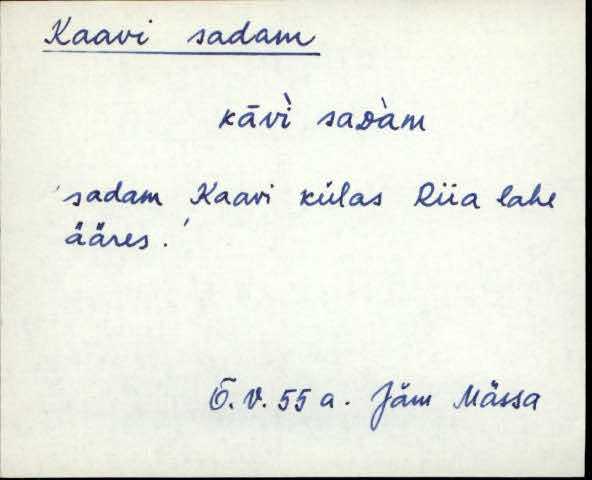 Kaavi sadam
kāvì saᴅàm
'sadam Kaavi külas Riia lahe
ääres.'
Õ.V. 55 a. Jäm Mässa